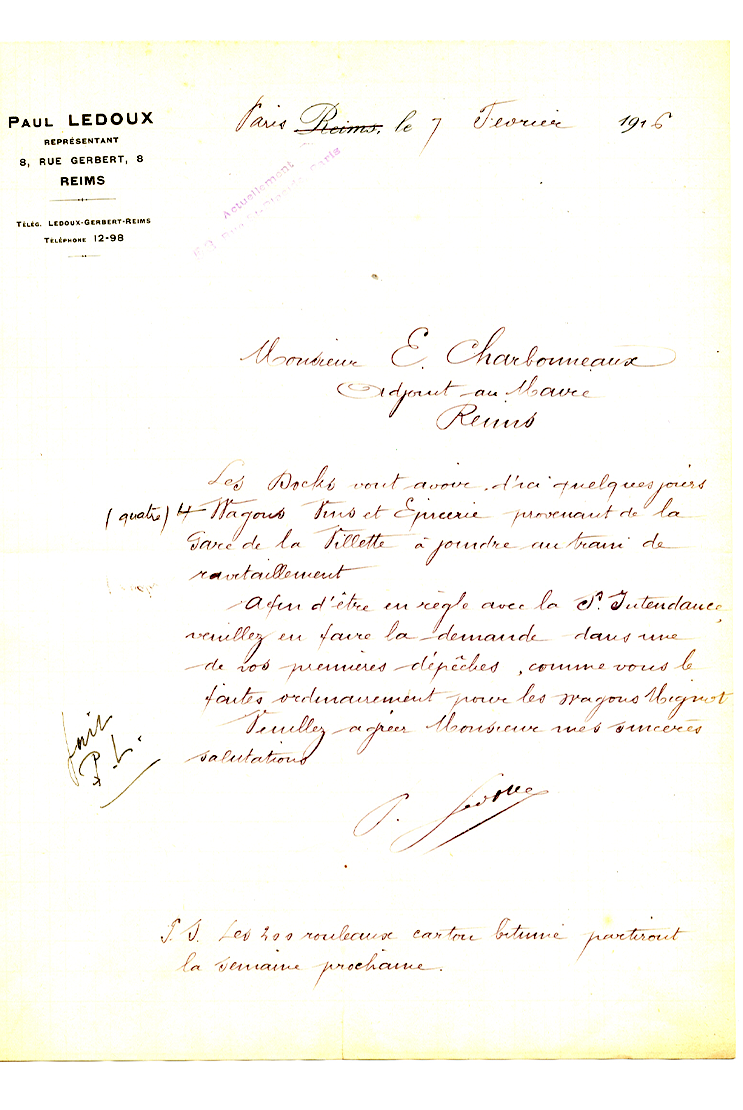 PAUL LEDOUX
REPRÉSENTANT
8, RUE GERBERT, 8
REIMS
TÉLÉG. LEDOUX-GERBERT-REIMS
TÉLÉPHONE 12-98
Paris Reims, le 7 Fevrier 1916
Actuellement
Rue Paris
Monsieur E. Charbonneaux
Adjoint au Maire
Reims
Les Docks vont avoir d'ici quelques jours
(quatre) 4 Wagons Vins et Epicerie provenant de la
Gare de la Villette à joindre au train de
ravitaillement
Afin d'être en règle avec la S. Intendance,
veuillez en faire la demande dans une
de vos premières dépêches, comme vous le
faites ordinairement pour les wagons Mignot
Veuillez agréer Monsieur mes sincères
salutations
fait
P. L.
P. Ledoux
P.S. Les 200 rouleaux carton bitumé partiront
la semaine prochaine.